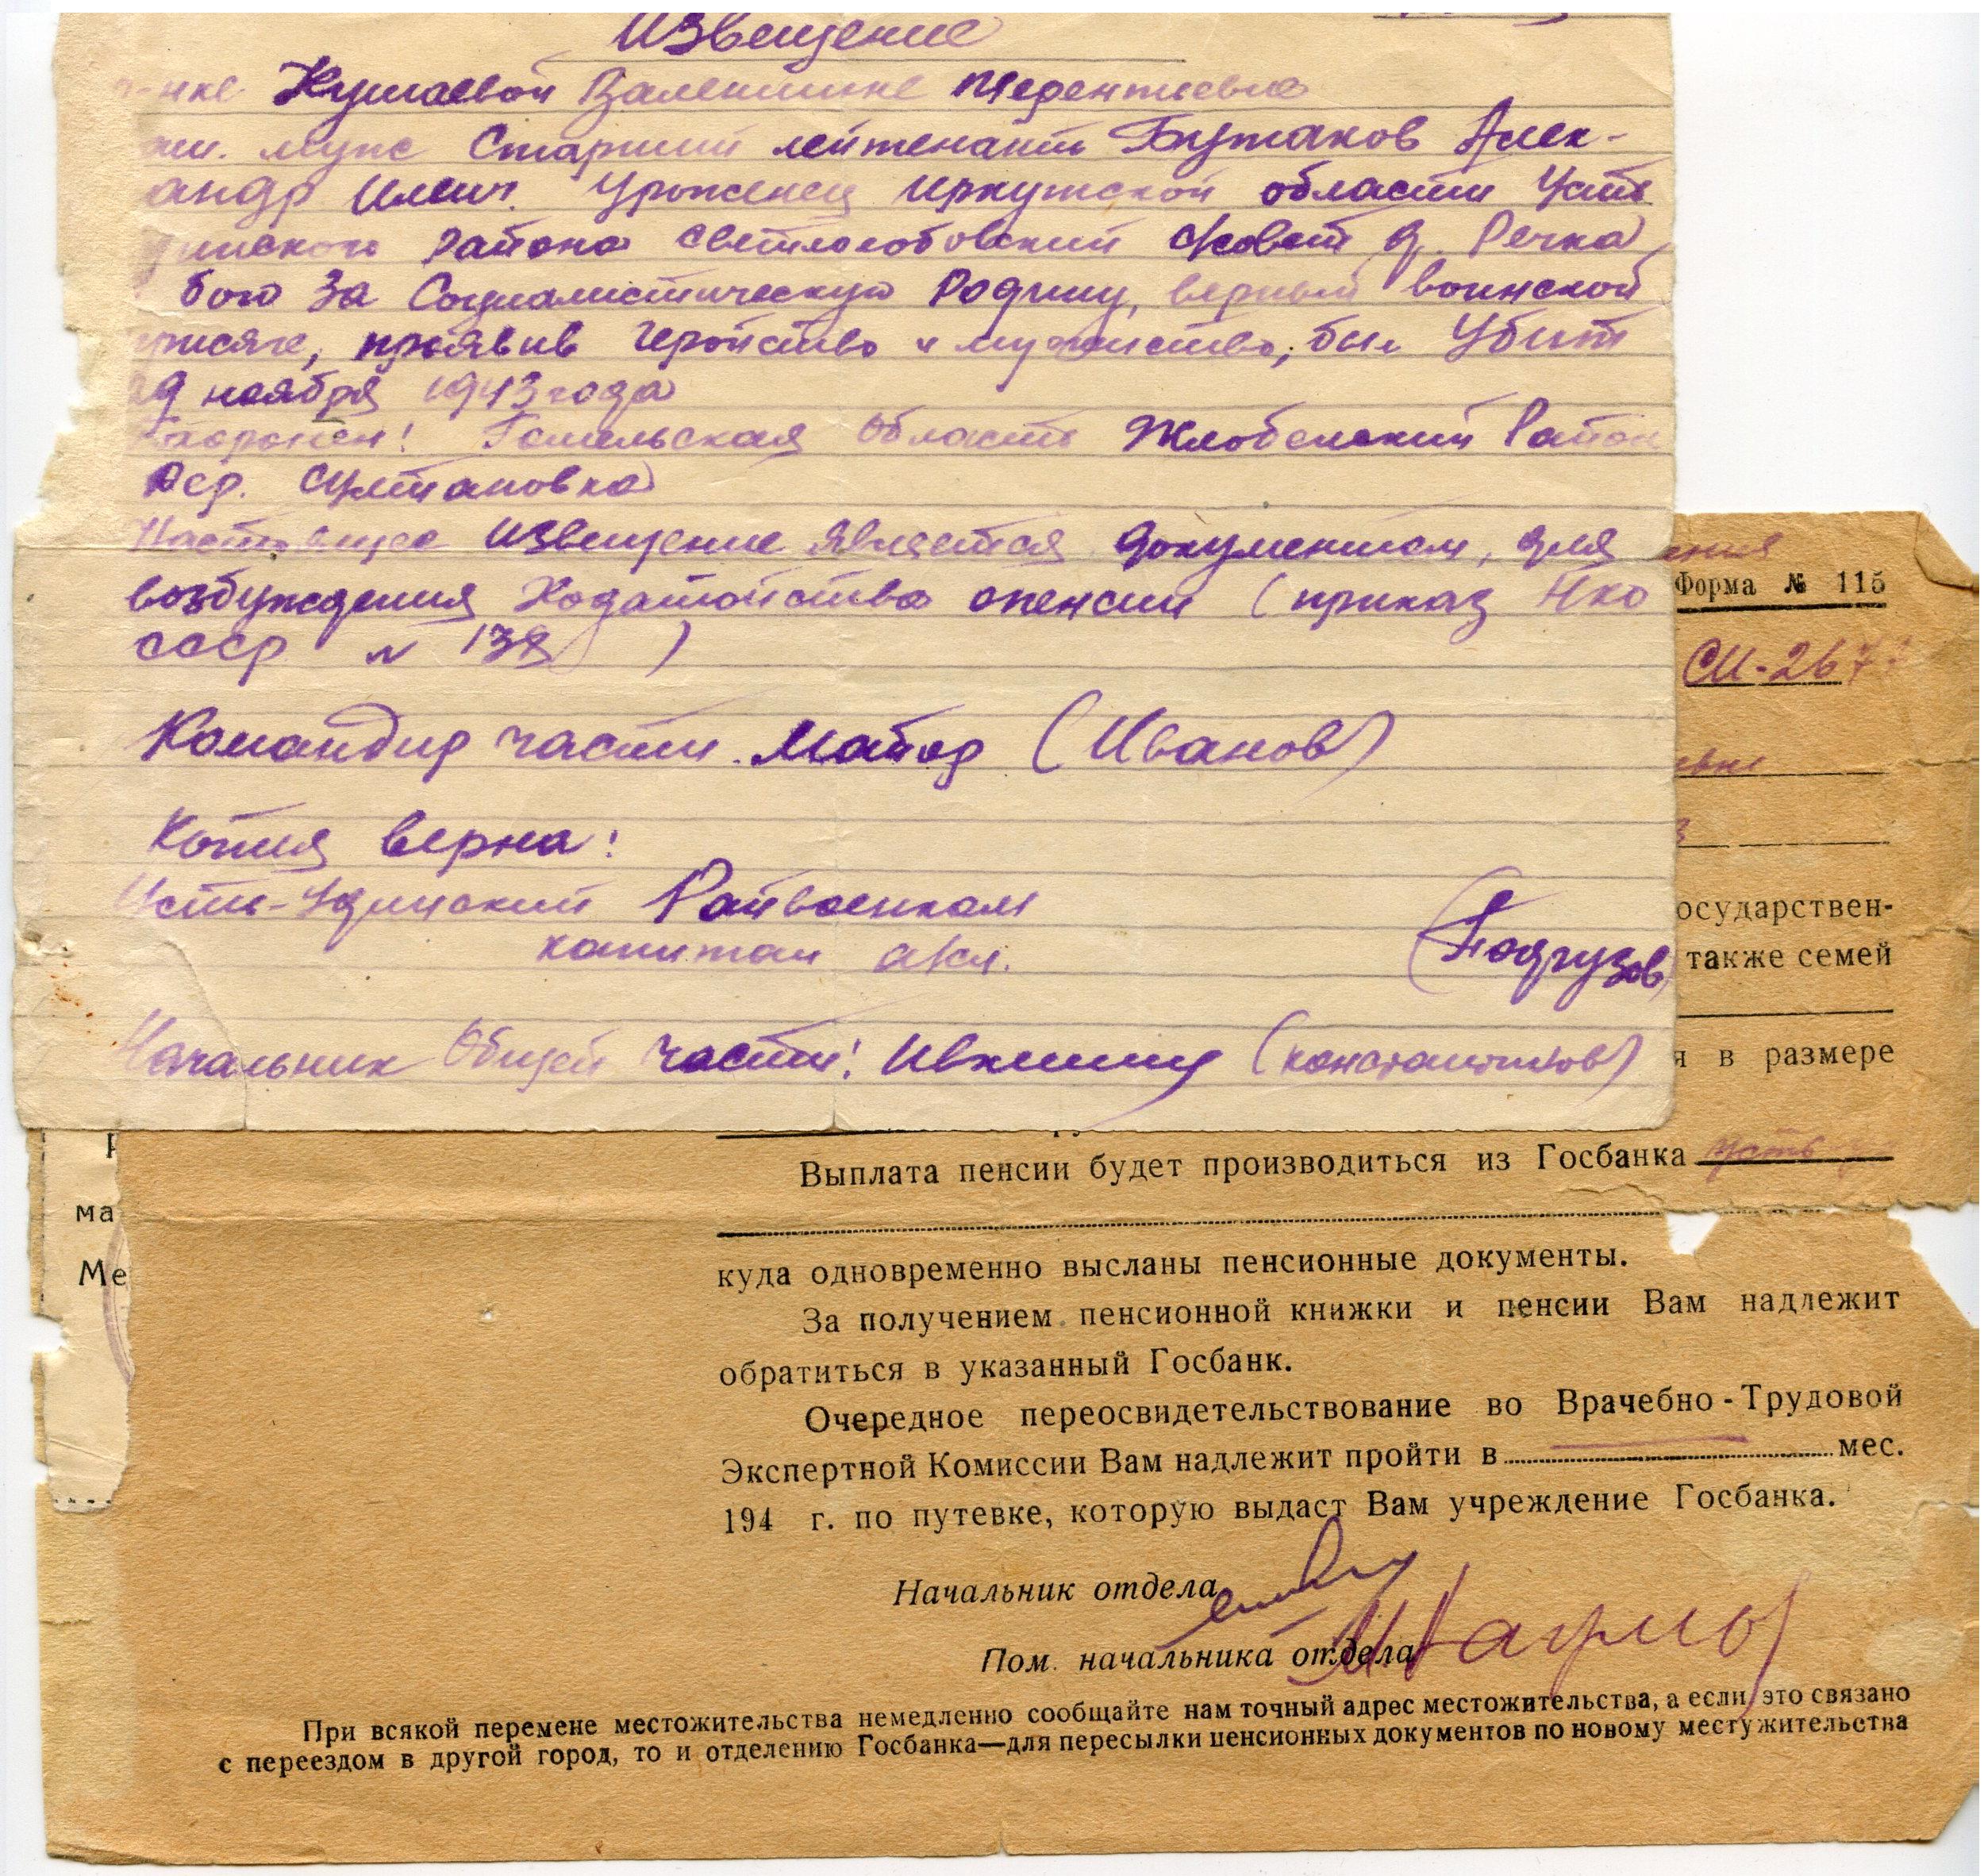 Извещение
Кушаевой Валентине Терентьевне
муж Старший лейтенант Бутаков Алек-
андр Илеич. Уроженец Иркутской области Усть
динского района Светлолобовский с/совет д. Речка
бою за Социалистическую Родину, верный воинской
присяге, проявив геройство и мужество, был Убит
9 ноября 1943 года
Похоронен! Гомельская область Жлобенский Район
дер. Султановка
Настоящее извещение является документом, для
возбуждения Ходатайства опенсии (приказ НКО
СССР N 138 )
Командир части. Майор (Иванов)
Копия верна:
Усть-Удинский Райвоенком
капитан а/сл.
(Подгузов)
Начальник Общей части: (Константинов)
ения
Форма № 115
СИ-267
осударствен-
также семей
я в размере
Выплата пенсии будет производиться из Госбанка Усть
куда одновременно высланы пенсионные документы.
За получением пенсионной книжки и пенсии Вам надлежит
обратиться в указанный Госбанк.
Очередное переосвидетельствование во Врачебно-Трудовой
Экспертной Комиссии Вам надлежит пройти в мес.
194 г. по путевке, которую выдаст Вам учреждение Госбанка.
Начальник отдела
Пом. начальника отдела
При всякой перемене местожительства немедленно сообщайте нам точный адрес местожительства, а если это связано
с переездом в другой город, то и отделению Госбанка—для пересылки пенсионных документов по новому местужительства
ма
Ме